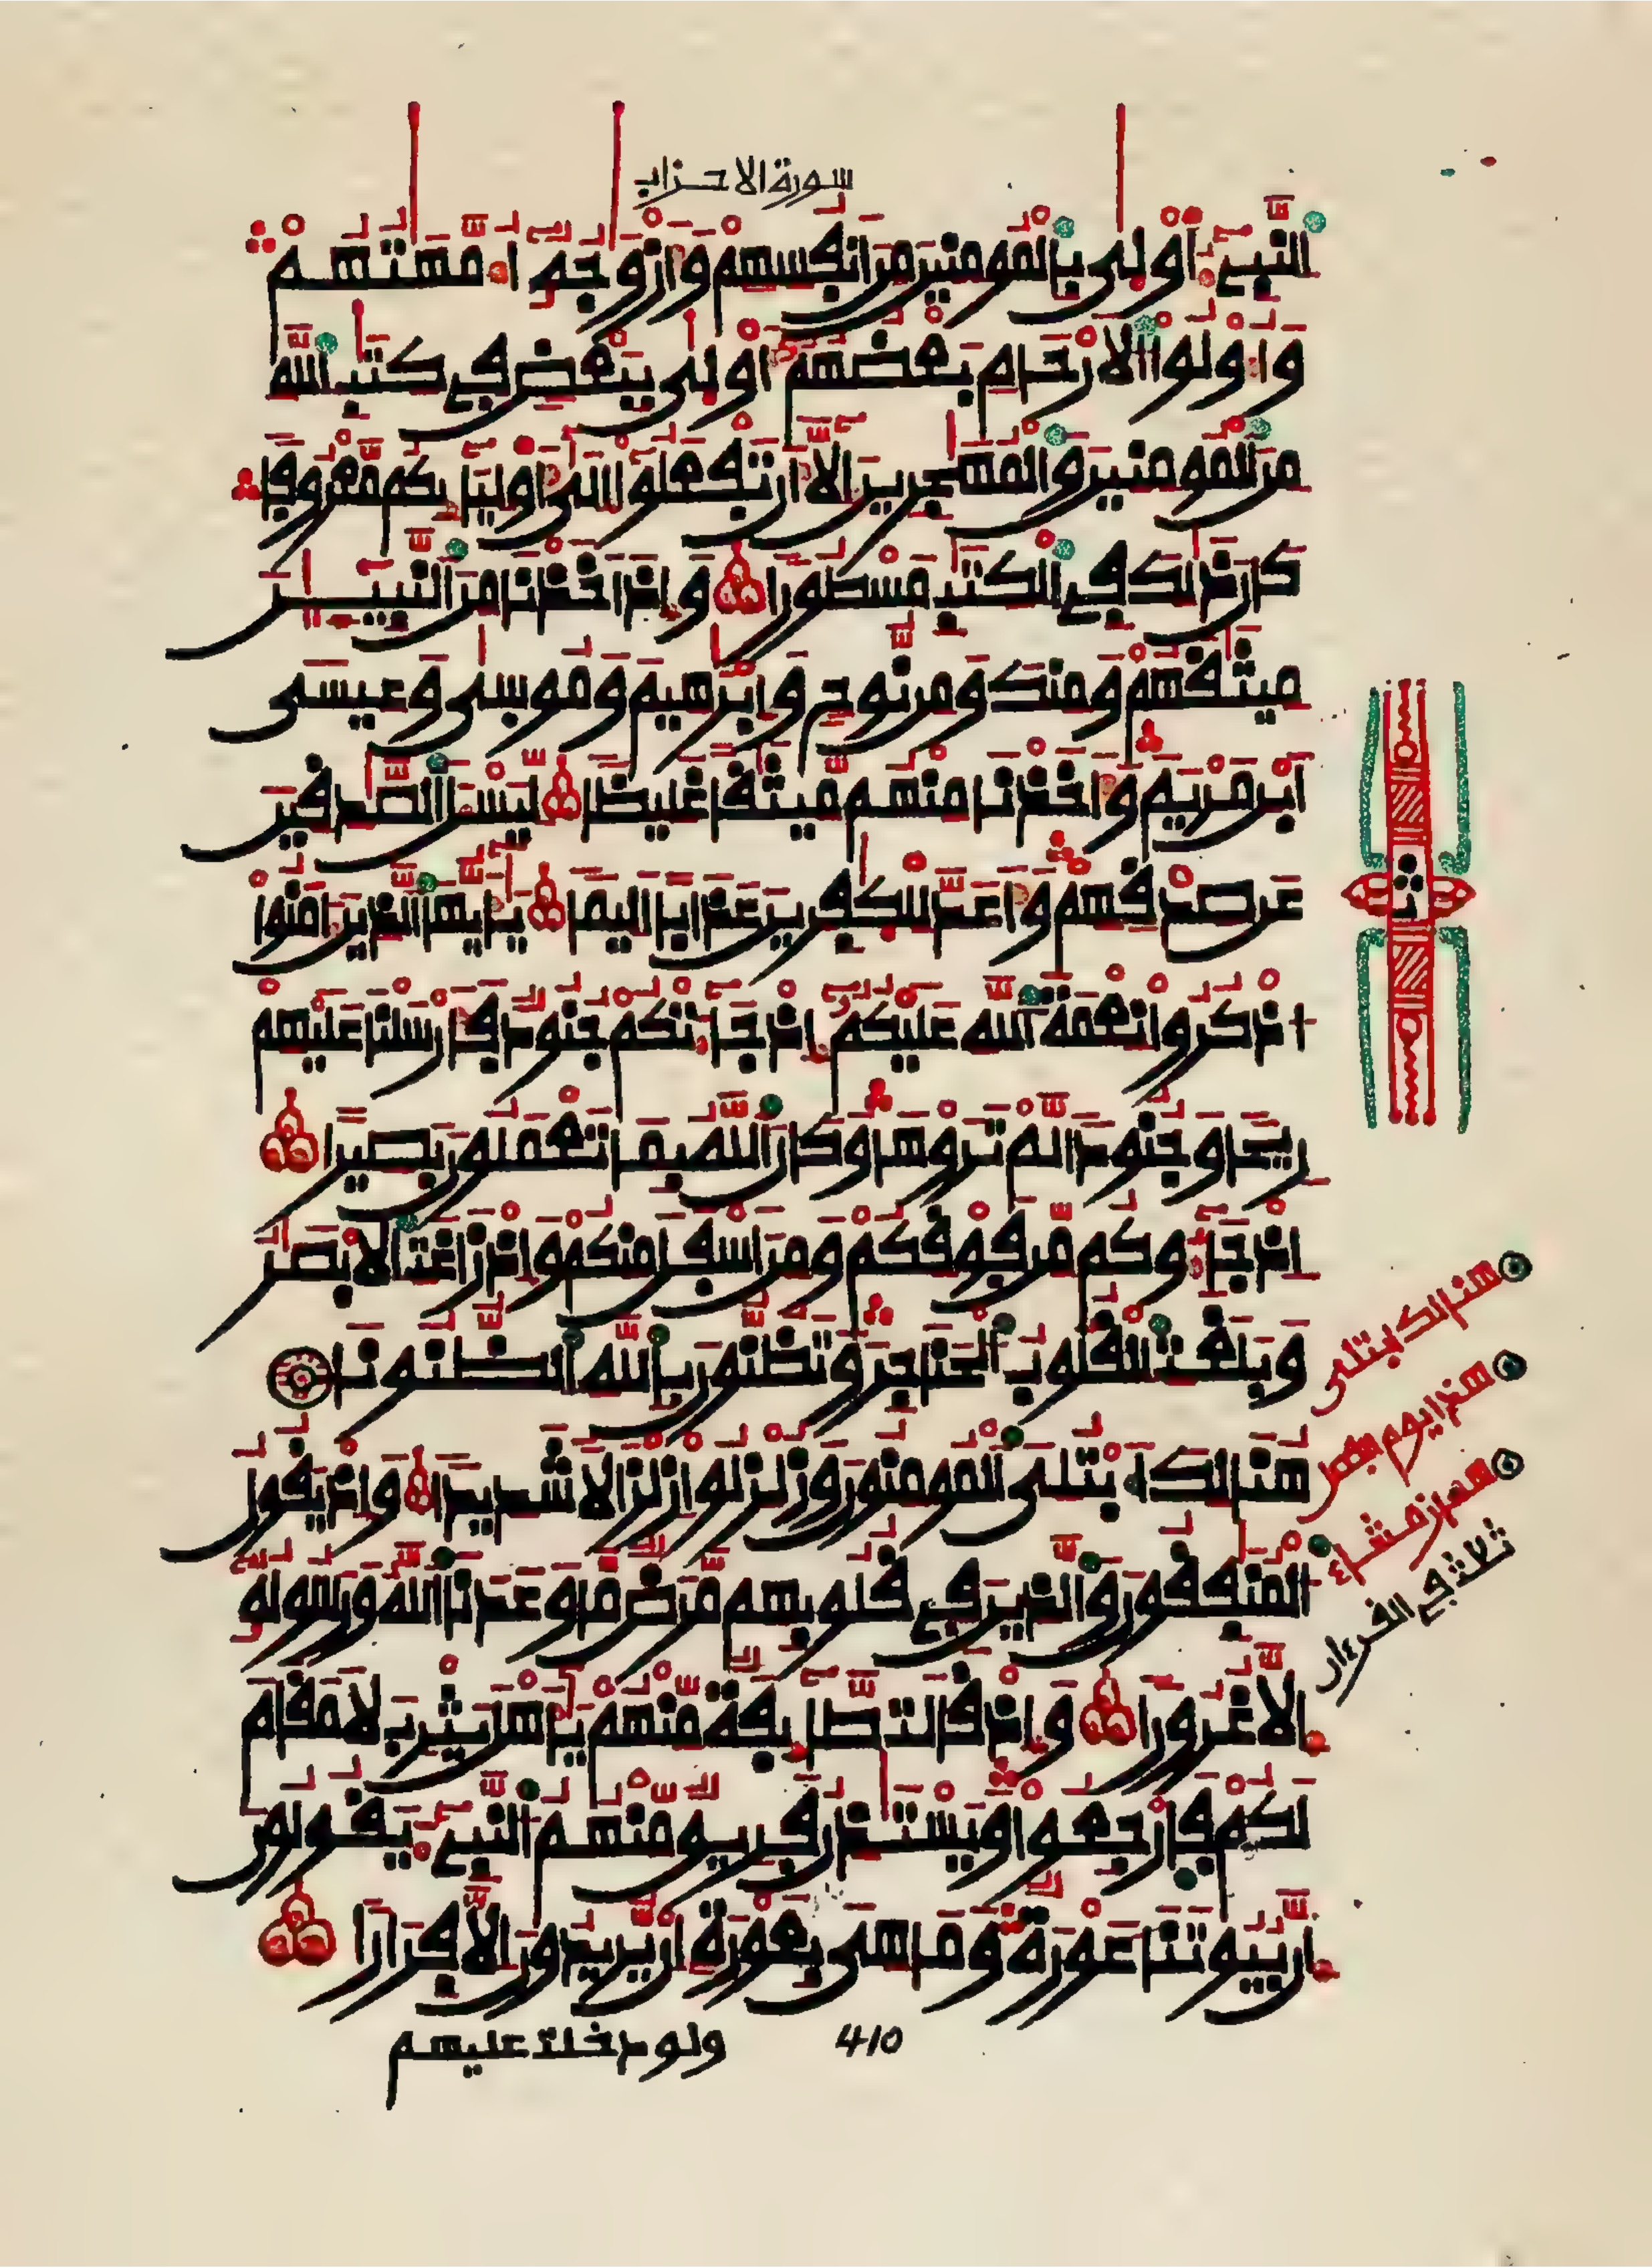 سورة الاحزاب
النبيء اولى بالمومنين من انفسهم وازوجه امهتهم
واولوا الارحام بعضهم اولى ببعض في كتب الله
من المومنين والمهجرين الا ان تفعلوا الى اوليايكم معروفا
كان ذلك في الكتب مسطورا واذ اخذنا من النبيين
ميثقهم ومنك ومن نوح وابرهيم وموسى وعيسى
ابن مريم واخذنا منهم ميثقا غليظا ليسل الصدقين
عن صدقهم واعد للكفرين عذابا اليما يايها الذين امنوا
اذكروا نعمة الله عليكم اذ جاءتكم جنود فارسلنا عليهم
ريحا وجنودا لم تروها وكان الله بما تعملون بصيرا
اذ جاءوكم من فوقكم ومن اسفل منكم واذ زاغت الابصر
وبلغت القلوب الحناجر وتظنون بالله الظنونا
هنالك ابتلى المومنون وزلزلوا زلزالا شديدا واذ يقول
المنفقون والذين في قلوبهم مرض ما وعدنا الله ورسوله
الا غرورا واذ قالت طايفة منهم ياهل يثرب لا مقام
لكم فارجعوا ويستذن فريق منهم النبيء يقولون
ان بيوتنا عورة وما هى بعورة ان يريدون الا فرارا
ولو دخلت عليهم
410
هنالك ابتلى
هذا يوم
ثلاث في القرءان